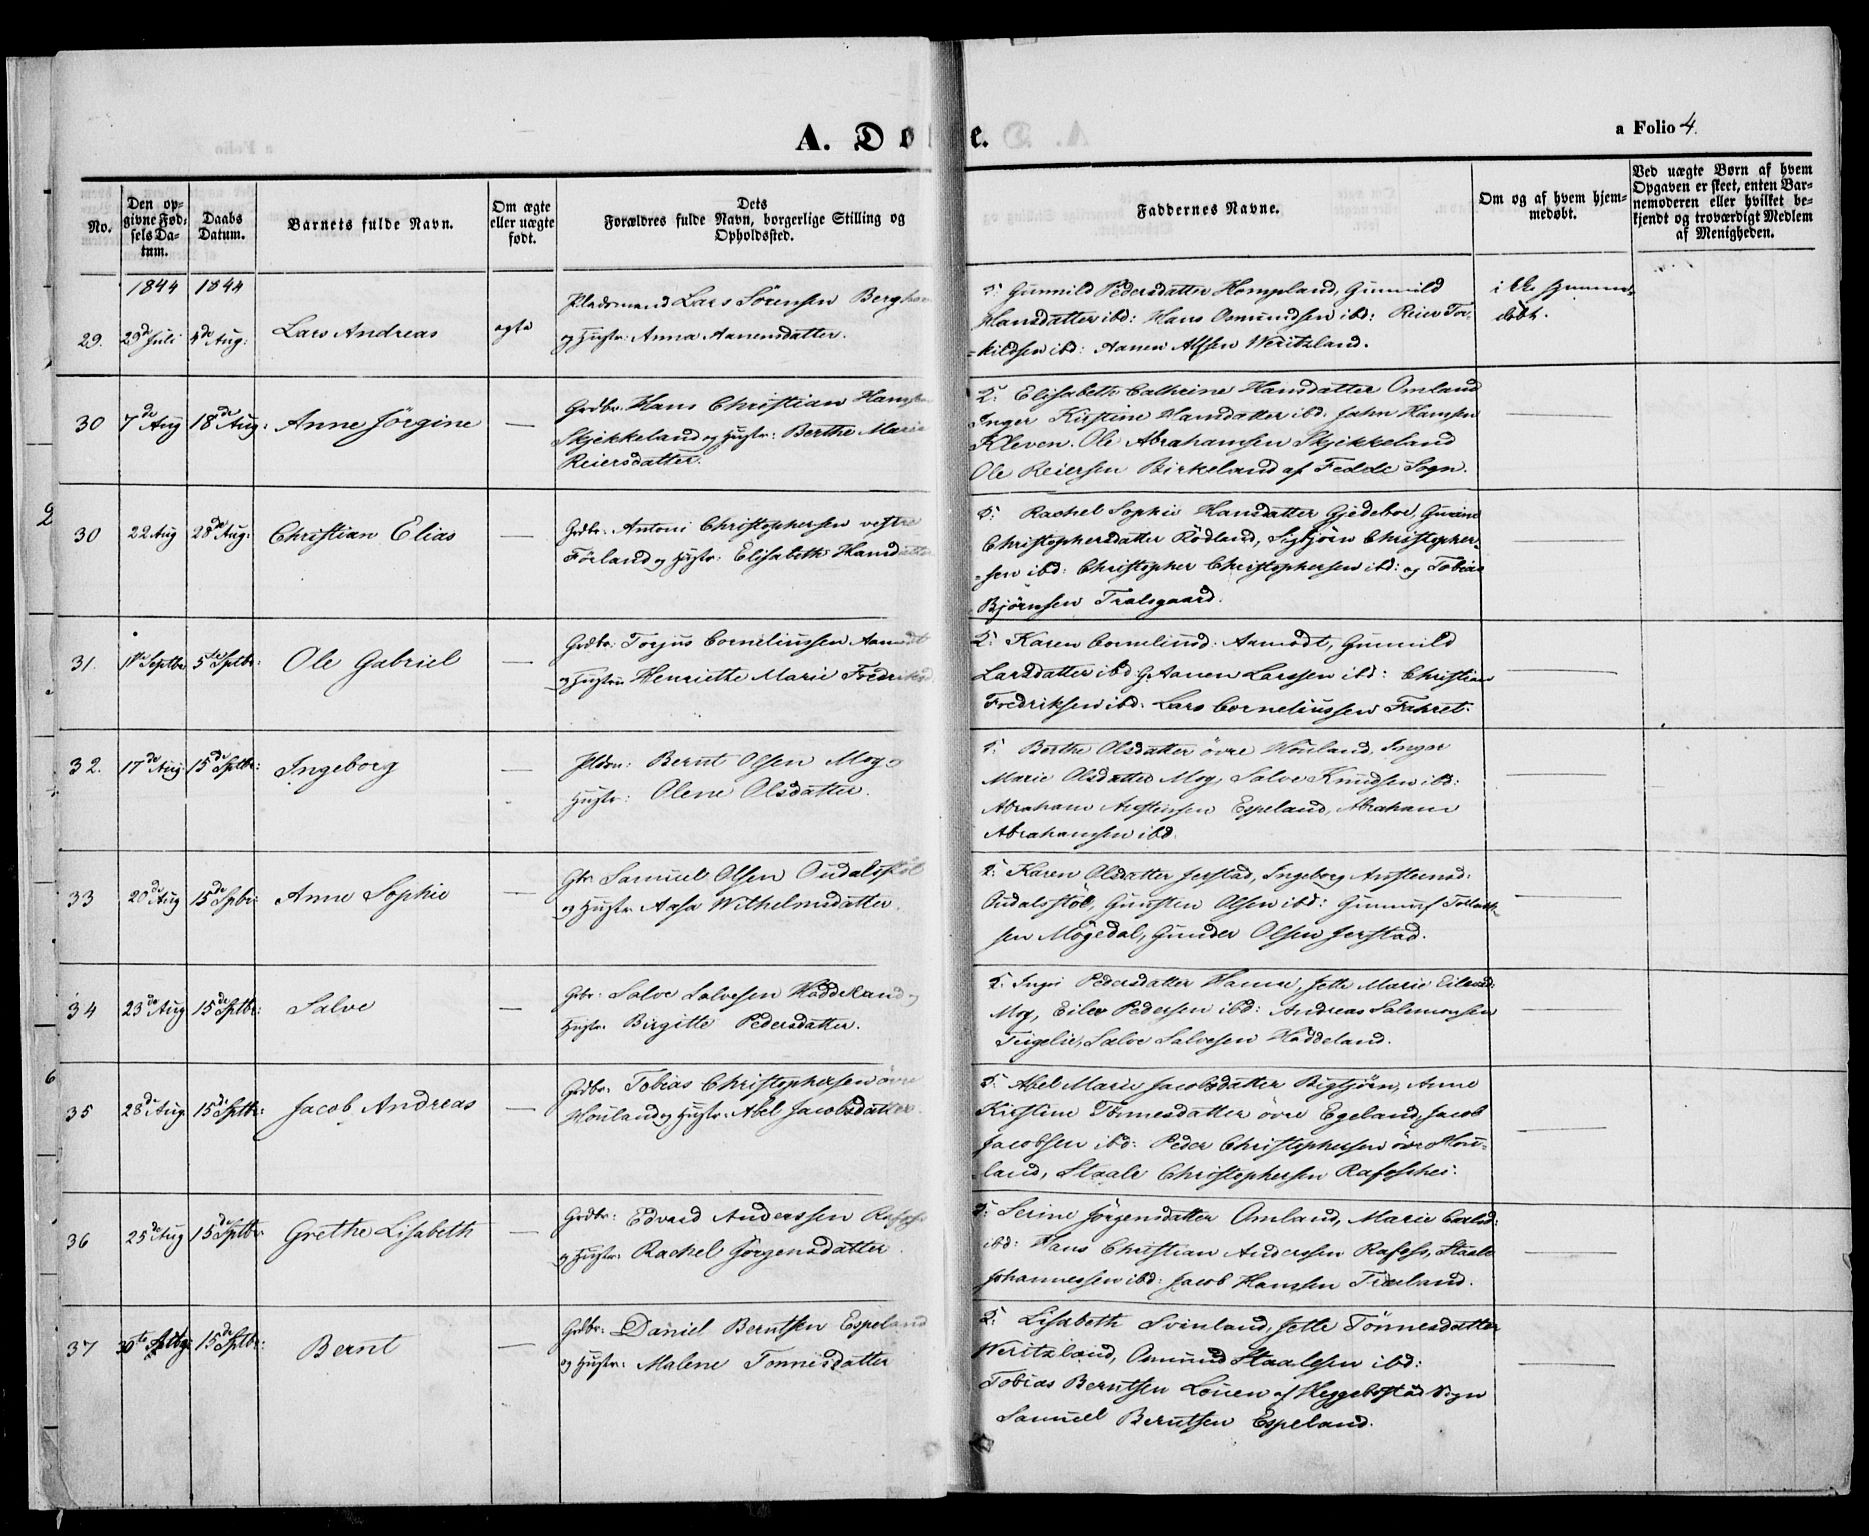 A. Døbte.
a Folio 4.
No.
Den op-
givne Fød-
sels Da-
tum.
Daabs
Datum.
Barnets fulde Navn.
Om ægte
eller uægte
født.
Dets
Forældres fulde Navn, borgerlige Stilling og
Opholdssted.
Faddernes Navne.
Om og af hvem hjem-
medøbt.
Ved uægte Børn af hvem
Opgaven er skeet, enten Bar-
nemoderen eller hvilket be-
kjendt og troværdigt Medlem
af Menigheden.
1844 1844
29. 29de Juli 4de Aug: Lars Andreas ægte
Pladsmand Lars Sörensen
og Hustr: Anna Aanensdatter.
5: Gunnild Pedersdatter Hompland, Gunnild
Hansdatter ibd: Hans Osmundsen ibd: Reier Tor-
-kildsen ibd: Aanen Alfsen Weritzland.
ikke hjemme-
döbt.
30 7de Aug 18de Aug: Anne Jörgine —
Grdbr: Hans Christian Hansen
Skjekkeland og Hustr: Berthe Marie
Reiersdatter.
2: Elisabeth Cathrine Hansdatter Omland
Inger Kirstine Hansdatter ibd: Jahn Hansen
Kleven. Ole Abrahamsen Skjekkeland
Ole Reiersen Birkeland af Fedde Sogn.
30 22 Aug 28de Aug: Christian Elias —
Grdbr: Antoni Christophersen vestre
Förland og Hustr: Elisabeth Hansdatter
5: Rachel Sophie Hansdatter Gjedeboe,
Christophersdatter Rödland, Sigbjörn Christopher-
-sen ibd: Christopher Christophersen ibd: og Tobias
Björnsen Tralsgaard.
31. 1ste Septbr 5te Sptbr: Ole Gabriel —
Grdbr: Torjus Corneliussen Aamodt
og Hustru Henriette Marie Fredriksd.
2: Karen Corneliusd: Aamodt, Gunnild
Larsdatter ibd: Aanen Larssen ibd: Christian
Fredriksen ibd: Lars Corneliussen Fahret.
32. 17de Aug: 15de Sptbr: Ingeborg —
Bernt Olsen Moy o
Hustr: Olene Olsdatter.
5: Berthe Olsdatter övre Houland, Inger
Marie Olsdatter Moy, Salve Knudsen ibd:
Abraham Espeland, Abraham
Abrahamsen ibd.
33 20de Aug 15de Spbr: Anne Sophie —
Gbr: Samuel Olsen Oudalsstöl
og Hustr: Aasa Wilhelmsdatter.
2: Karen Olsdatter Jerstad, Ingeborg
Oudalsstöl, Gunsten Olsen ibd:
sen Mögedal, Gunder Olsen Jerstad.
34 23de Aug 15de Sptbr: Salve —
Grbr: Salve Salvesen Haddeland og
Hustr: Birgitte Pedersdatter.
2: Pedersdatter Jette Marie
Moy, Eilev Pedersen ibd: Andreas Salemonsen
Salve Salvesen Haddeland.
35 28de Aug 15de Sptbr: Jacob Andreas —
Grdbr: Tobias Christophersen övre
Houland og Hustr: Abel Jacobsdatter.
5: Abel Marie Jacobsdatter Bigbjörn, Anne
Kirstine Tönnesdatter övre Egeland, Jacob
Jacobsen ibd: Peder Christophersen övre Hou-
land, Staale Christophersen
36 25de Aug 15de Sptbr: Grethe Lisabeth —
Grdbr: Edvard Anderssen Rafoss
og Hustr: Rachel Jörgensdatter.
5: Serine Jörgensdatter Omland, Marie Carlsd:
ibd: Hans Christian Anderssen Rafoss, Staale
Johannessen ibd: Jacob Hanssen
37 15de Sptbr: Bernt —
Grdbr: Daniel Berntsen Espeland
og Hustr: Malene Tonnesdatter
2: Lisabeth Svinland, Jette Tönnesdatter
Weritzland, Osmund Staalesen ibd:
Tobias Berntsen af Heggebostad Sogn
Samuel Berntsen Espeland.